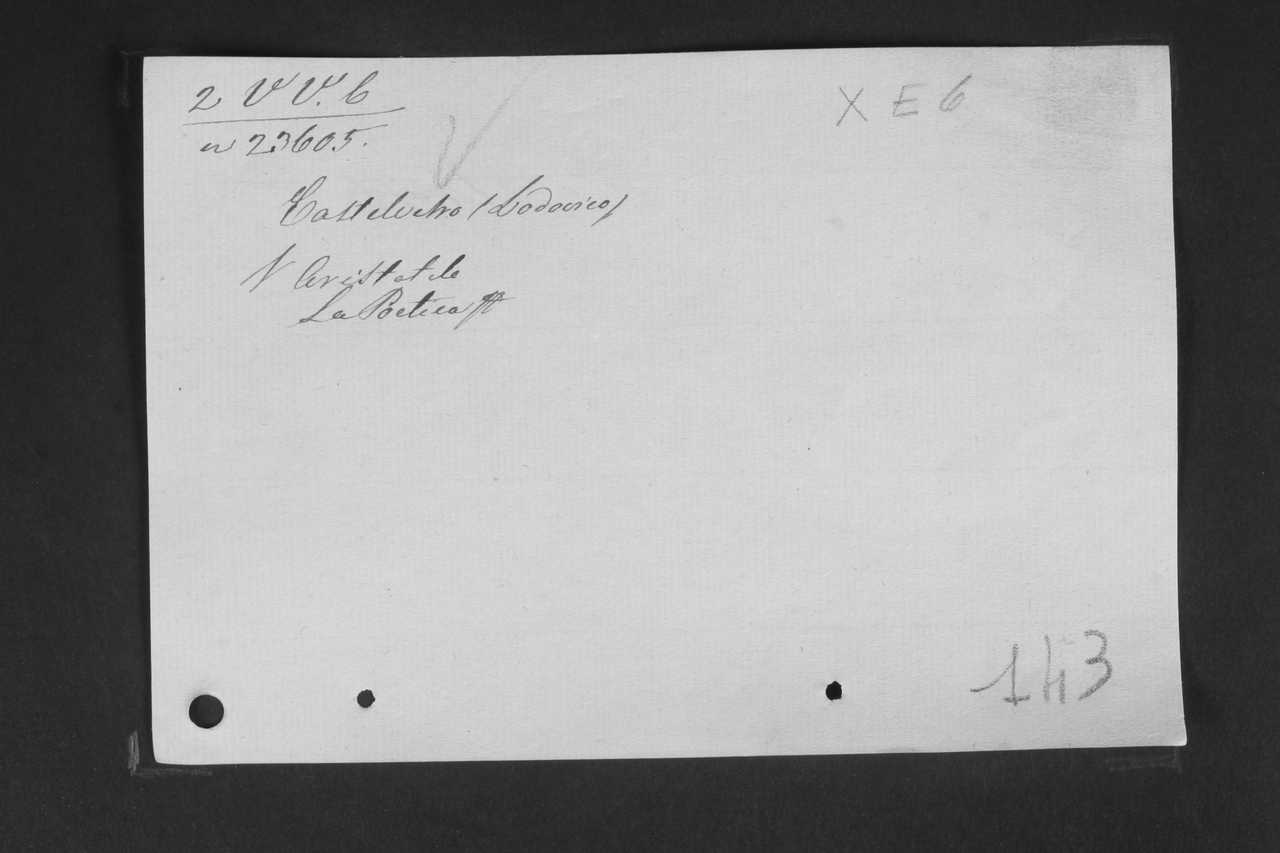 2 V V. 6
n 23605.
X E 6
Castelvetro (Lodovico)
V Aristotele
La Poetica
143